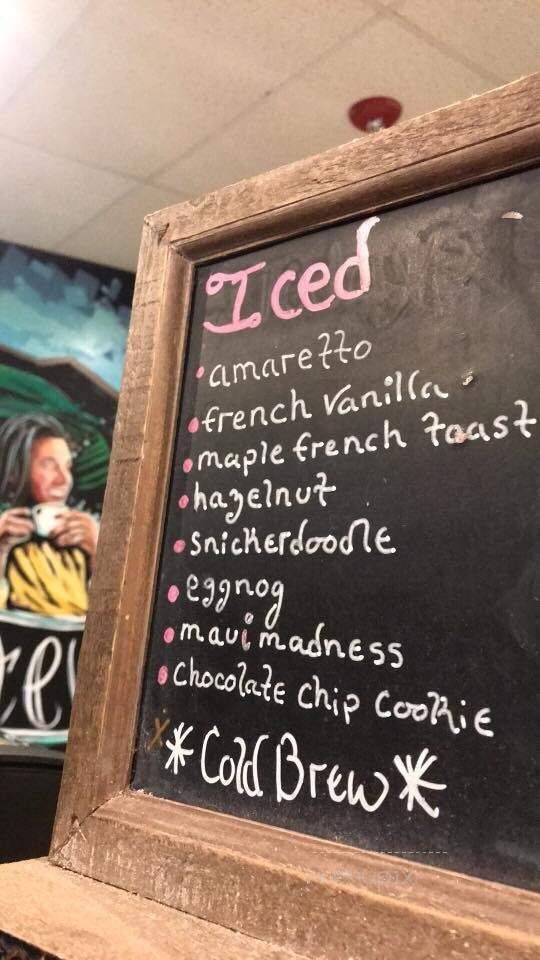 Iced
• amaretto
• french vanilla
• maple french toast
• hazelnut
• snickerdoodle
• eggnog
• maui madness
• chocolate chip cookie
* Cold Brew *